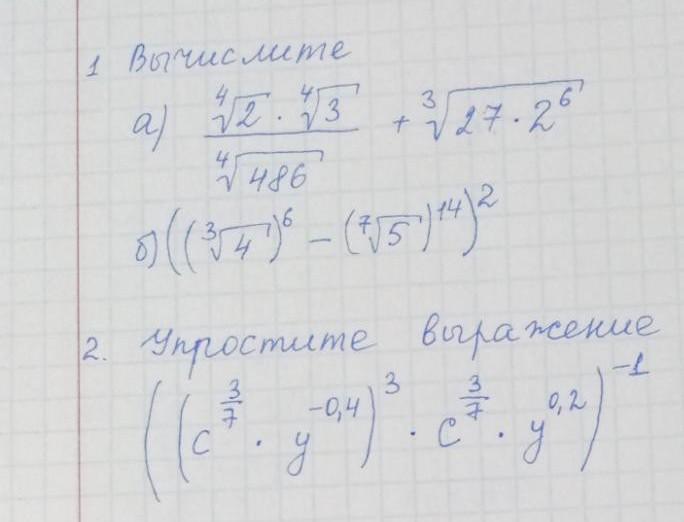 1 Вычислите
а) (⁴√2 · ⁴√3) / ⁴√486 + ³√(27 · 2⁶)
б) ((³√4)⁶ − (⁷√5)¹⁴)²
2. Упростите выражение
((c^(3/7) · y^(−0,4))³ · c^(3/7) · y^(0,2))^(−1)